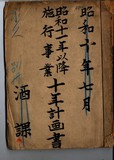 昭和十年七月
昭和十一年以降
施行事業
十年計画書
酒課